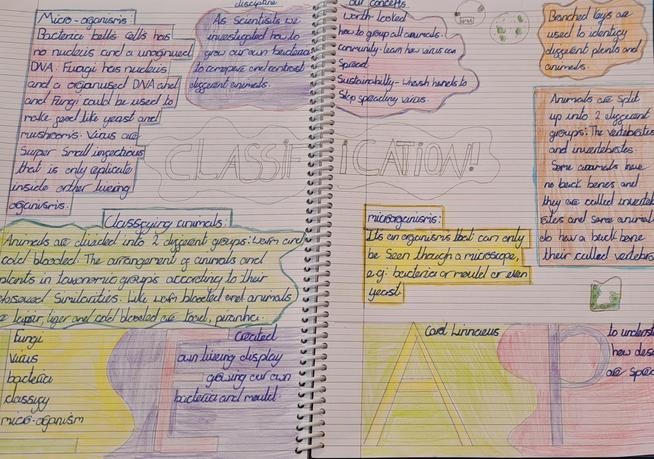 Micro-organisms:
Bacteria cells cells has
no nucleus and a unorganised
DNA. Fungi has nucleus
and a organised DNA and
and Fungi could be used to
make food like yeast and
mushrooms. Virus are
Super Small infectious
that is only replicate
inside other living
organisms.
discipline
As Scientists we
investigated how to
grow our own bacteria
to compare and contrast
different animals.
our concepts
Worth looked
how to group all animals.
community- learn how virus can
Spread.
Sustainability- Whash hands to
Stop spreading virus.
Branched keys are
used to identify
different plants and
animals.
Animals are split
up into 2 different
groups: The vertebrates
and invertebrates.
Some animals have
no back bones and
they are called inverteb
ates and Some animal
do have a back bone
their called vertebra
CLASSIFICATION!
Classfying animals:
Animals are divided into 2 different groups: Warm and
cold blooded. The arrangement of animals and
plants in taxonomic groups according to their
observed Similarities. Like warm blooded and animals
tiger and cold blooded are toad, piranha.
microorganisms:
Its an organisms that can only
be Seen though a microscope,
e.g: bacteria or mould or even
yeast.
fungi
Virus
bacteria
classify
micro-organism
L
E
Created
own living display
growing our own
bacteria and mould.
A
Carl Linnaeus
P
to underst
how dise
are Sprea